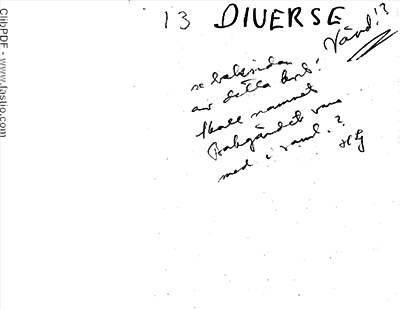 13 DIVERSE
Vänd!?
se baksidan
av detta kort!
Skall namnet
Bakgärdet vara
med i saml.?
HG
ClibPDF - www.fastio.com